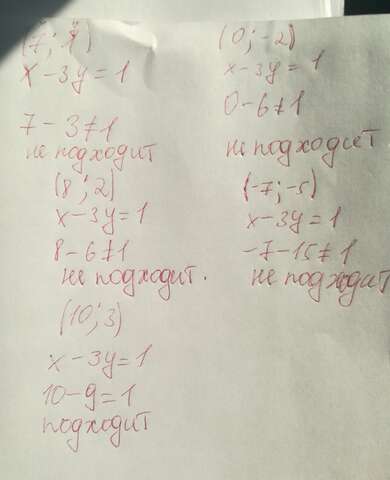 (7; 1)
x - 3y = 1
7 - 3 ≠ 1
не подходит
(8; 2)
x - 3y = 1
8 - 6 ≠ 1
не подходит.
(10; 3)
x - 3y = 1
10 - 9 = 1
подходит
(0; -2)
x - 3y = 1
0 - 6 ≠ 1
не подходит
(-7; -5)
x - 3y = 1
-7 - 15 ≠ 1
не подходит